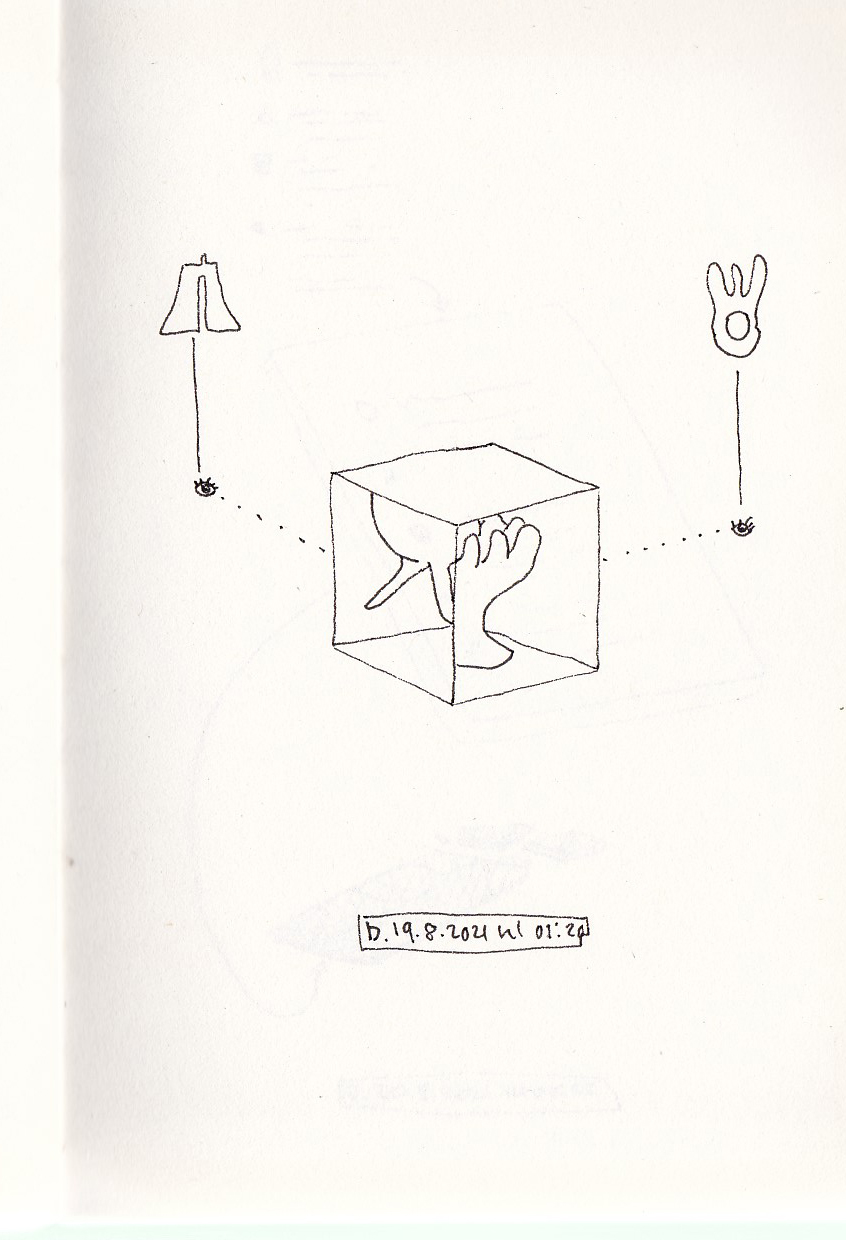 D. 19.8.2021 kl 01:2